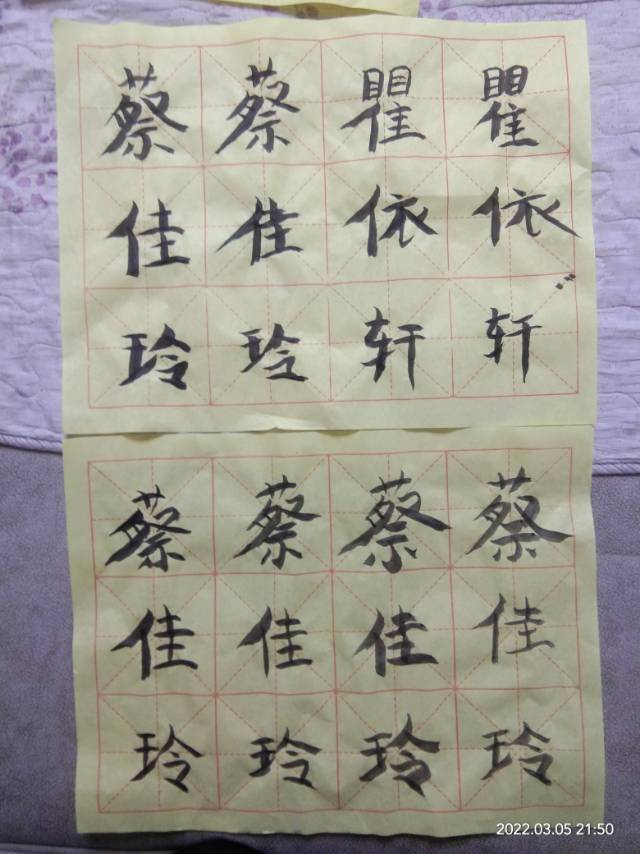 蔡蔡瞿瞿
佳佳依依
玲玲轩轩
蔡蔡蔡蔡
佳佳佳佳
玲玲玲玲
2022.03.05 21:50